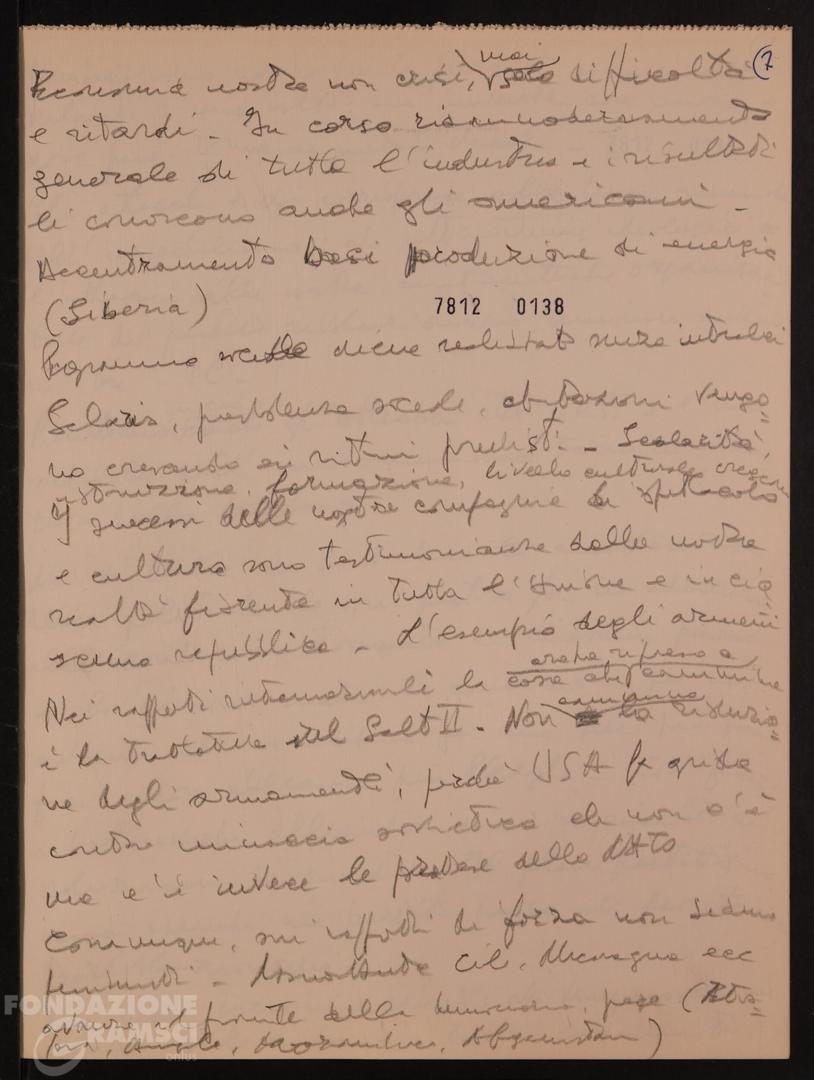 7
Economia nostra non crisi, mai difficoltà
e ritardi - In corso riammodernamento
generale di tutta l'industria e i risultati
li conoscono anche gli americani -
Accentramento basi produzione di energia
(Siberia)
7812 0138
Programma sociale viene realizzato senza intralci
Salari, previdenza sociale, abitazioni vengo=
no crescendo ai ritmi previsti. - Scolarità,
istruzione, formazione, livello culturale
I successi delle nostre compagnie di spettacolo
e cultura sono testimonianza della nostra
realtà fiorente in tutta l'Unione e in cia
scuna repubblica - L'esempio degli armeni
Nei rapporti internazionali la cosa che cammina
anche ripresa a
camminare
è la trattativa sul Salt II - Non la riduzio=
ne degli armamenti, perché USA fa grida
contro minaccia sovietica che non c'è
ma c'è invece la della NATO
Comunque, sui rapporti di forza non siamo
Cile, ecc
avanza il fronte della pace (Etio=
pia, Angola, Afganistan)
FONDAZIONE
GRAMSCI
onlus